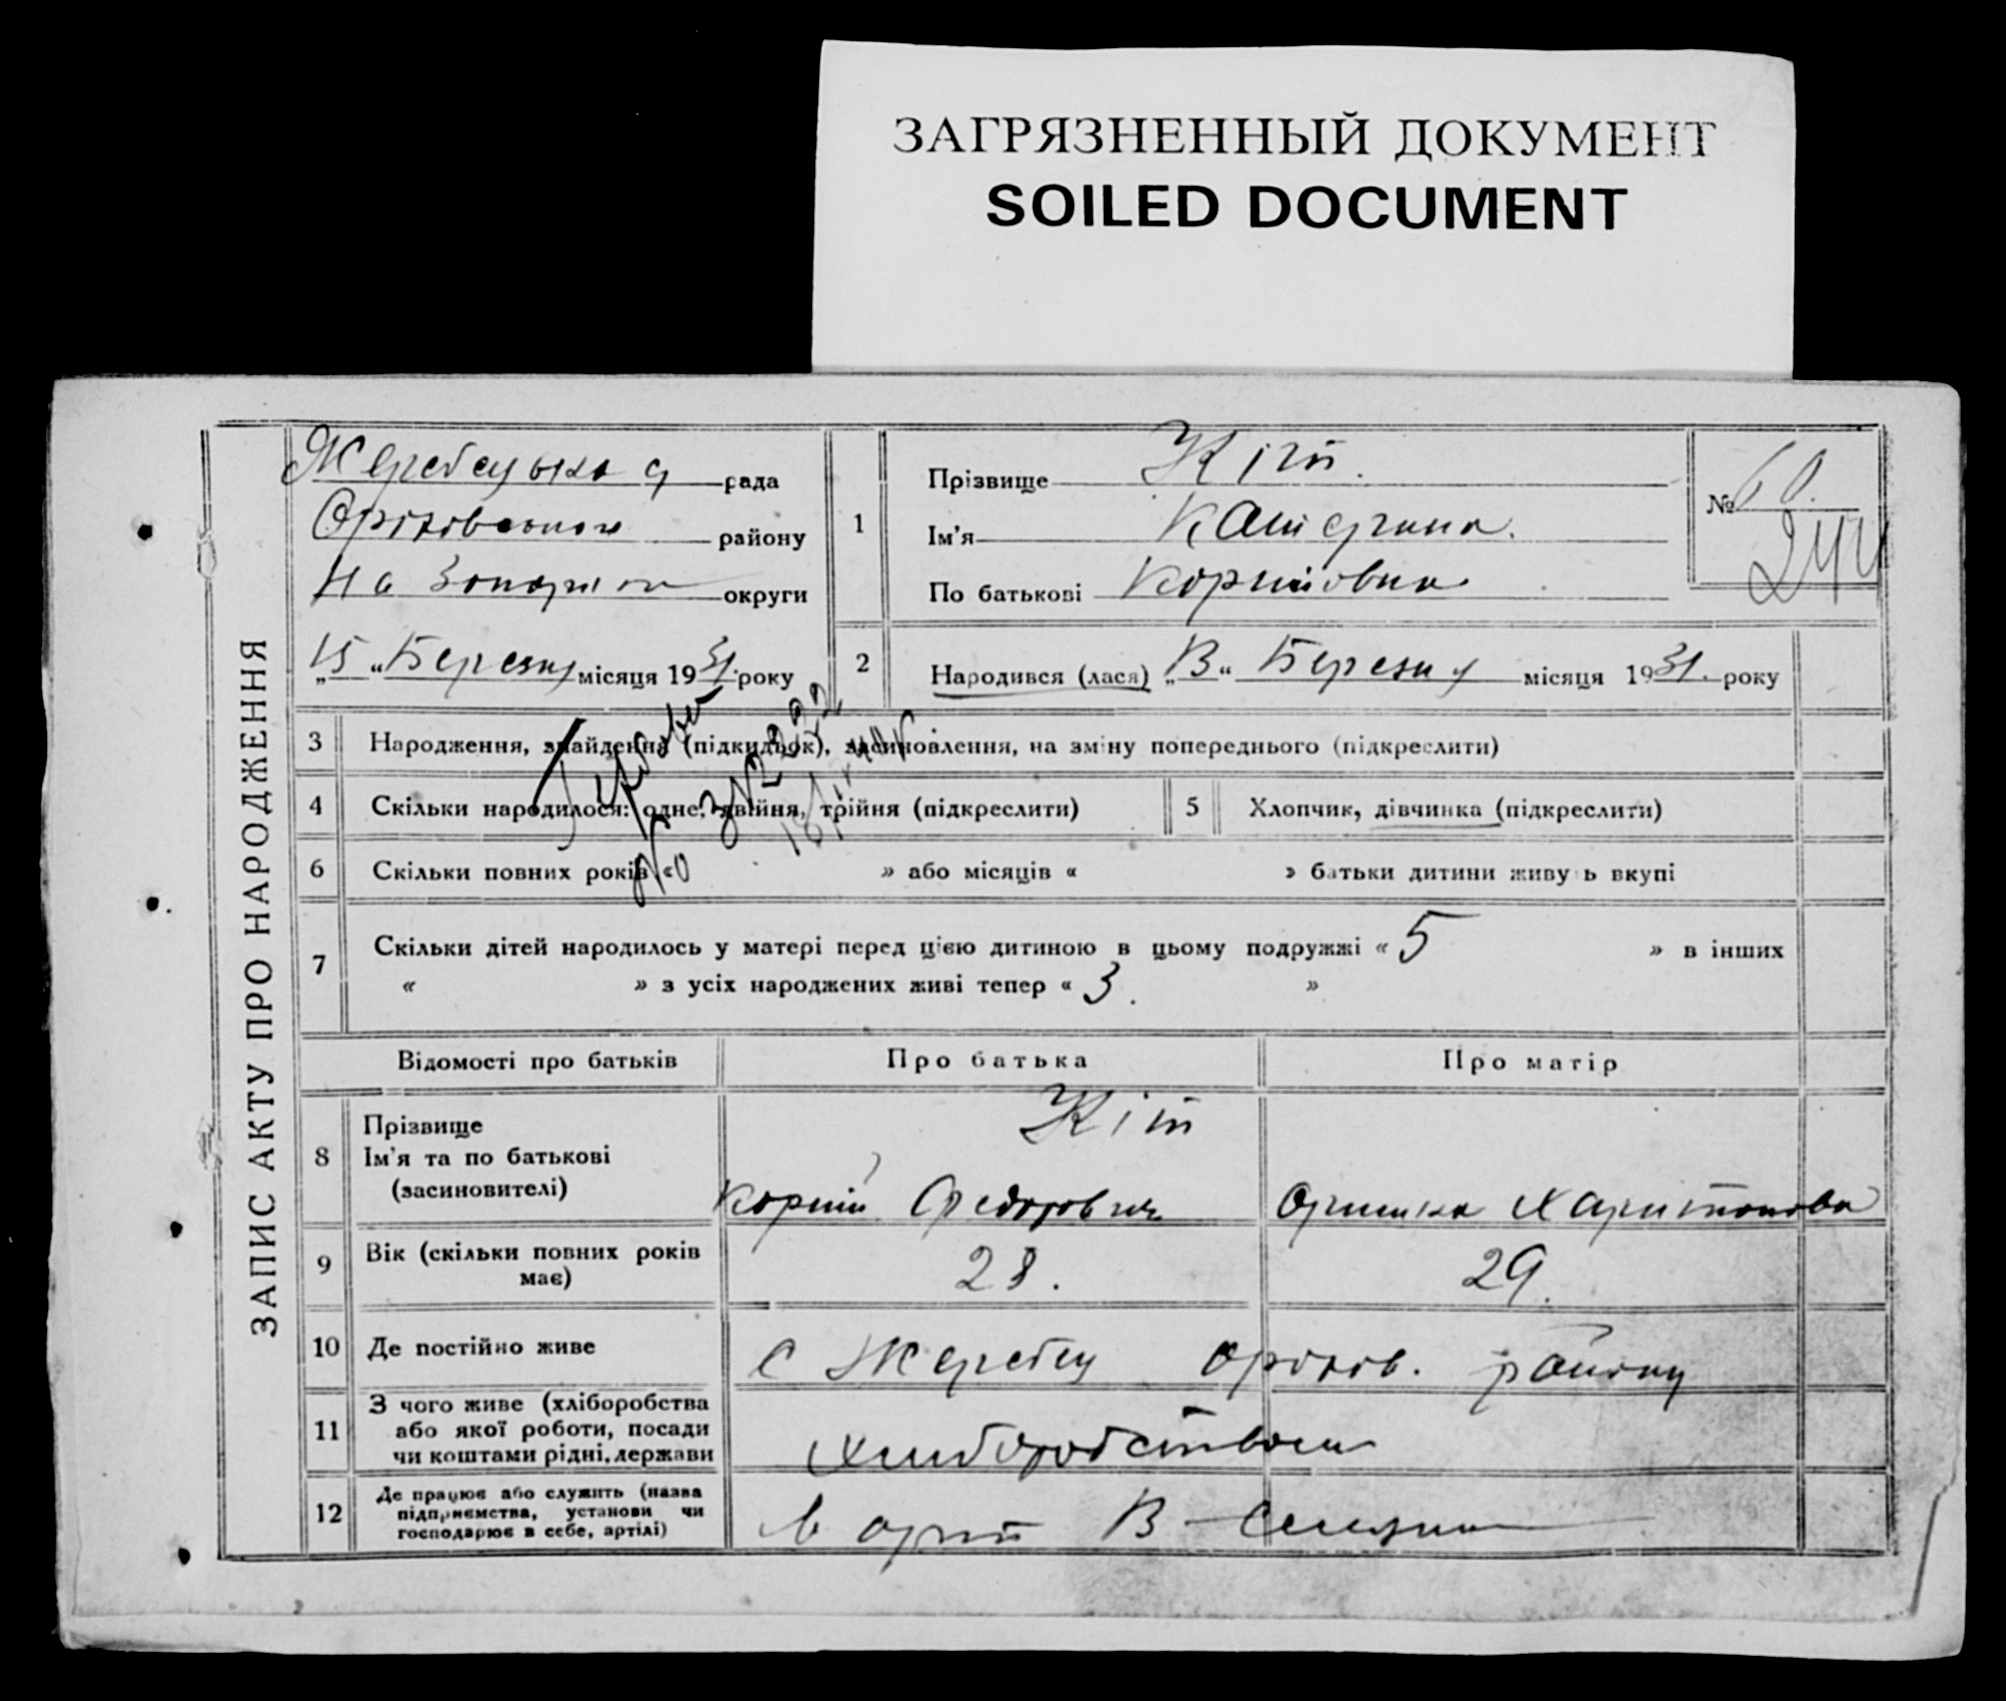 ЗАГРЯЗНЕННЫЙ ДОКУМЕНТ
SOILED DOCUMENT
ЗАПИС АКТУ ПРО НАРОДЖЕННЯ
рада
району
округи
„15“ Березня місяця 1931 року
1
Прізвище Кіт.
Ім'я Катерина.
По батькові Корніївна
№ 60.
244
2
Народився (лася) „13“ Березня місяця 1931. року
3 Народження, знайдення (підкидьок), засиновлення, на зміну попереднього (підкреслити)
4 Скільки народилося: одне, двійня, трійня (підкреслити)
5 Хлопчик, дівчинка (підкреслити)
6 Скільки повних років « » або місяців « » батьки дитини живуть вкупі
7 Скільки дітей народилось у матері перед цією дитиною в цьому подружжі « 5 » в інших
« » з усіх народжених живі тепер « 3. »
Відомості про батьків Про батька Про матір
8 Прізвище Кіт
Ім'я та по батькові
(засиновителі) Корній Федорович Оришка Харитонова
9 Вік (скільки повних років має) 28. 29.
10 Де постійно живе с Жеребец Оріхов. району
11 З чого живе (хліборобства
або якої роботи, посади
чи коштами рідні, держави хліборобством
12 Де працює або служить (назва
підприємства, установи чи
господарює в себе, артілі)